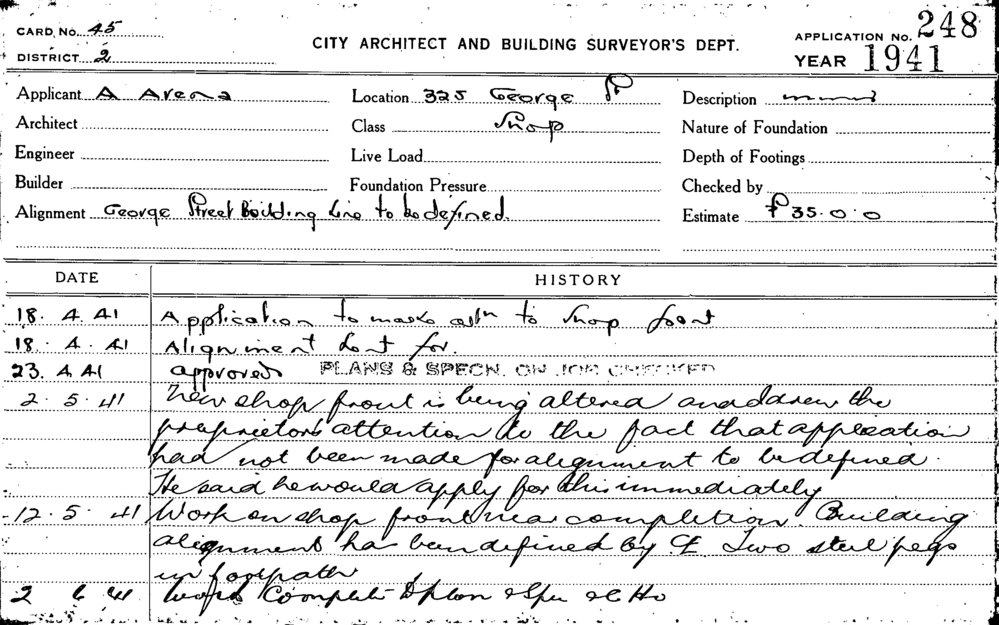 CARD, No. 45
DISTRICT 2
CITY ARCHITECT AND BUILDING SURVEYOR'S DEPT.
APPLICATION No. 248
YEAR 1941
Applicant A Arena Location 325 George St Description
Architect Class Shop Nature of Foundation
Engineer Live Load Depth of Footings
Builder Foundation Pressure Checked by
Alignment George Street Building line to be defined. Estimate £35.0.0
DATE HISTORY
18. 4. 41 Application to make altn to shop front
18. 4. 41 Alignment sent for.
23. 4. 41 approved PLANS & SPECN. ON JOB CHECKED
2. 5. 41 New shop front is being altered and drew the
proprietors attention to the fact that application
had not been made for alignment to be defined.
He said he would apply for this immediately
12. 5. 41 Work on shop front near completion. Building
alignment has been defined by CE Two steel pegs
in footpath
2 6 41 Work Complete